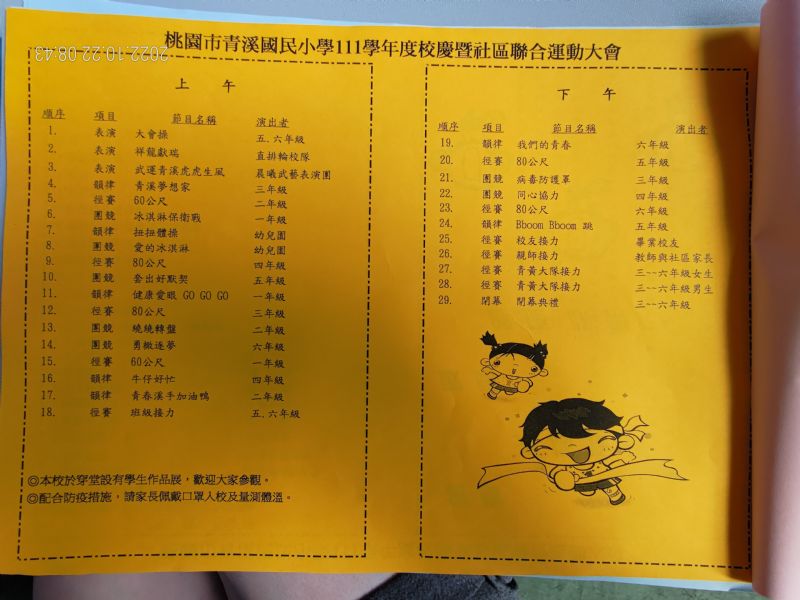 桃園市青溪國民小學111學年度校慶暨社區聯合運動大會
2022-10-22 08:43
上 午
順序 項目 節目名稱 演出者
1. 表演 大會操 五.六年級
2. 表演 祥龍獻瑞 直排輪校隊
3. 表演 武運青溪虎虎生風 晨曦武藝表演團
4. 韻律 青溪夢想家 三年級
5. 徑賽 60公尺 二年級
6. 團競 冰淇淋保衛戰 一年級
7. 韻律 扭扭體操 幼兒園
8. 團競 愛的冰淇淋 幼兒園
9. 徑賽 80公尺 四年級
10. 團競 套出好默契 五年級
11. 韻律 健康愛眼 GO GO GO 一年級
12. 徑賽 80公尺 三年級
13. 團競 繞繞轉盤 二年級
14. 團競 勇橄逐夢 六年級
15. 徑賽 60公尺 一年級
16. 韻律 牛仔好忙 四年級
17. 韻律 青春溪手加油鴨 二年級
18. 徑賽 班級接力 五.六年級
◎本校於穿堂設有學生作品展，歡迎大家參觀。
◎配合防疫措施，請家長佩戴口罩入校及量測體溫。
下 午
順序 項目 節目名稱 演出者
19. 韻律 我們的青春 六年級
20. 徑賽 80公尺 五年級
21. 團競 病毒防護罩 三年級
22. 團競 同心協力 四年級
23. 徑賽 80公尺 六年級
24. 韻律 Bboom Bboom 跳 五年級
25. 徑賽 校友接力 畢業校友
26. 徑賽 親師接力 教師與社區家長
27. 徑賽 青黃大隊接力 三~六年級女生
28. 徑賽 青黃大隊接力 三~六年級男生
29. 閉幕 閉幕典禮 三~六年級